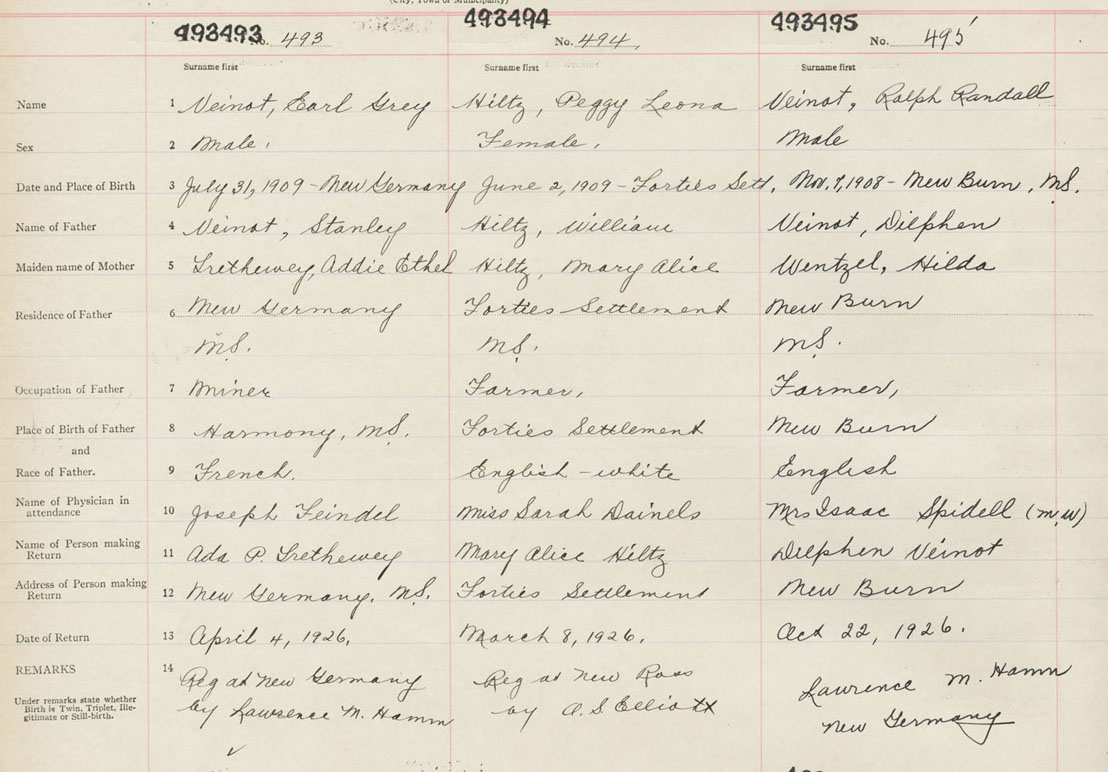 (City, Town or Municipality)
493493 No. 493 493494 No. 494, 493495 No. 495
Surname first Surname first Surname first
Name 1 Veinot, Earl Grey Hiltz, Peggy Leona Veinot, Ralph Randall
Sex 2 Male, Female, Male
Date and Place of Birth 3 July 31, 1909 - New Germany June 2, 1909 - Forties Sett, Nov. 7, 1908 - New Burn, N.S.
Name of Father 4 Veinot, Stanley Hiltz, William Veinot, Dilphen
Maiden name of Mother 5 Trethewey, Addie Ethel Hiltz, Mary Alice Wentzel, Hilda
Residence of Father 6 New Germany Forties Settlement New Burn
N.S. N.S. N.S.
Occupation of Father 7 Miner Farmer, Farmer,
Place of Birth of Father 8 Harmony, N.S. Forties Settlement New Burn
and
Race of Father. 9 French. English - white English
Name of Physician in
attendance 10 Joseph Feindel Miss Sarah Dainels Mrs Isaac Spidell (m.w)
Name of Person making
Return 11 Ada P. Trethewey Mary Alice Hiltz Dilphen Veinot
Address of Person making
Return 12 New Germany, N.S. Forties Settlement New Burn
Date of Return 13 April 4, 1926. March 8, 1926. Oct 22, 1926.
REMARKS 14 Reg at New Germany Reg at New Ross Lawrence M. Hamm
Under remarks state whether
Birth is Twin, Triplet, Ille-
gitimate or Still-birth. by Lawrence M. Hamm by A. S Elliott New Germany